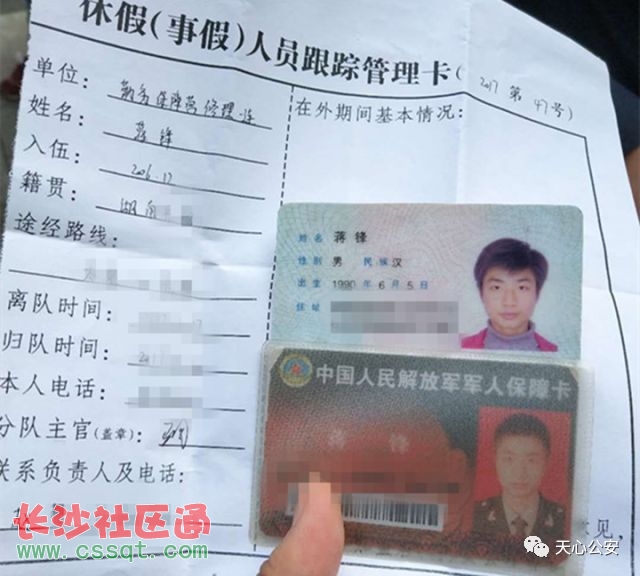 休假(事假)人员跟踪管理卡(2017第47号)
单位:勤务保障营修理连
姓名:蒋锋
在外期间基本情况:
入伍:2016.12
籍贯:湖南
途经路线:
离队时间:
归队时间:
本人电话:
分队主官(盖章):
联系负责人及电话:
姓名 蒋锋
性别 男 民族 汉
出生 1990 年 6 月 5 日
住址
中国人民解放军军人保障卡
蒋锋
意见,
长沙社区通
www.cssqt.com
天心公安